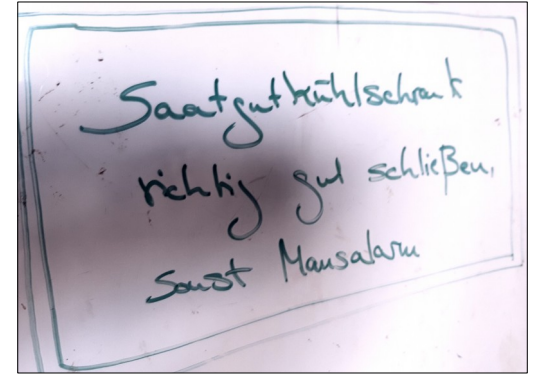 Saatgutkühlschrank
richtig gut schließen,
sonst Mausalarm